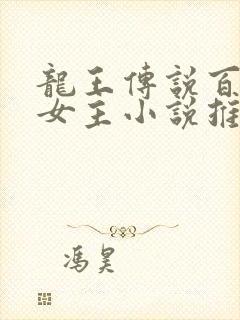 龍王傳說百
女主小說推
馮昊